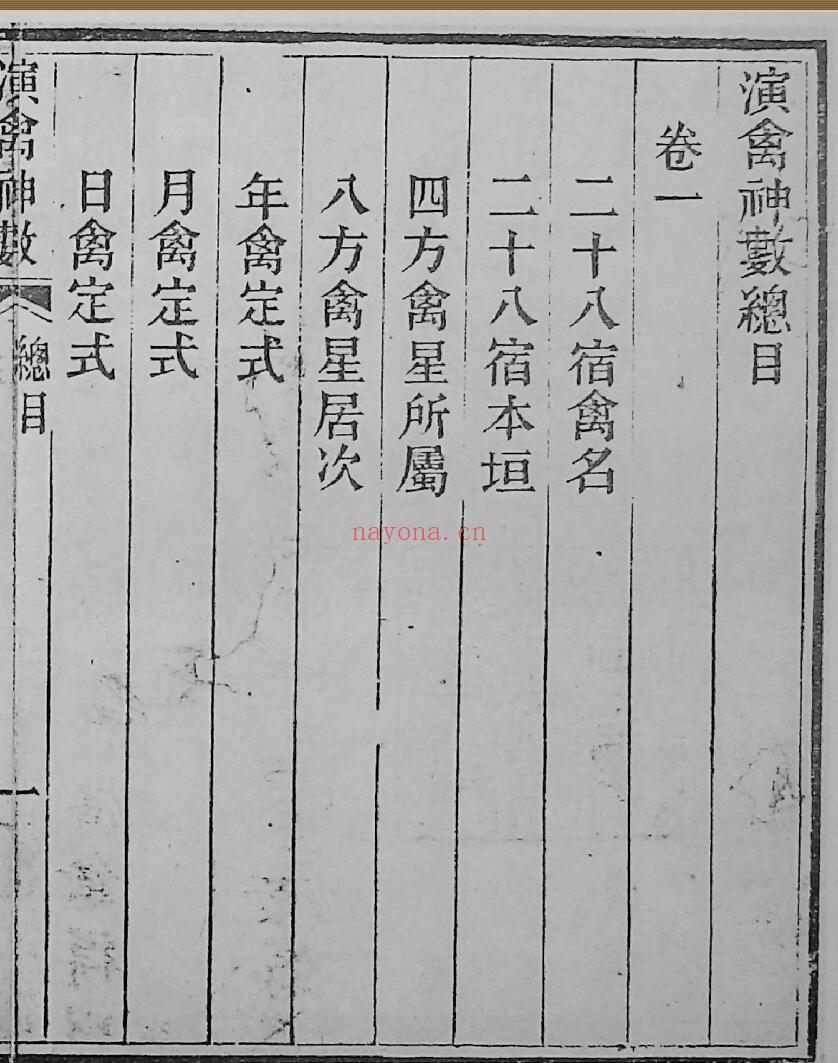 演禽神數總目
卷一
二十八宿禽名
二十八宿本垣
四方禽星所屬
八方禽星居次
年禽定式
月禽定式
日禽定式
演禽神數 總目 一
nayona.cn